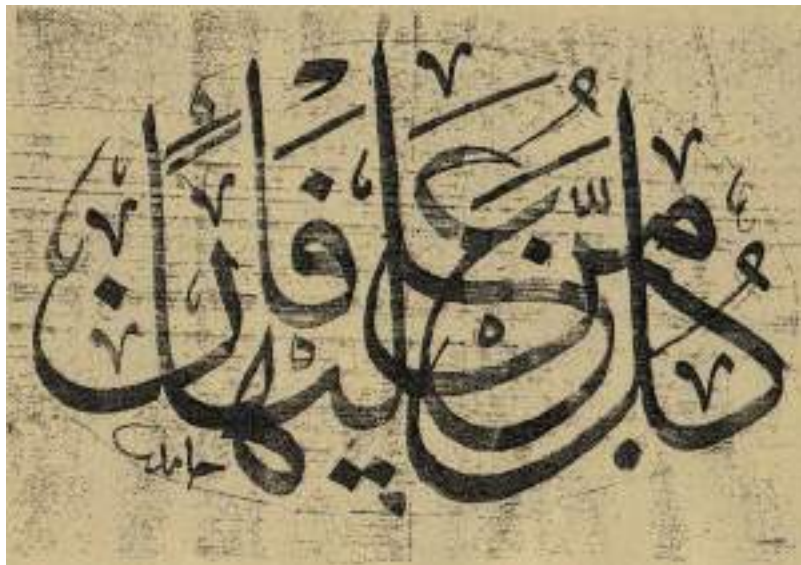 كل من عليها فان
حامد